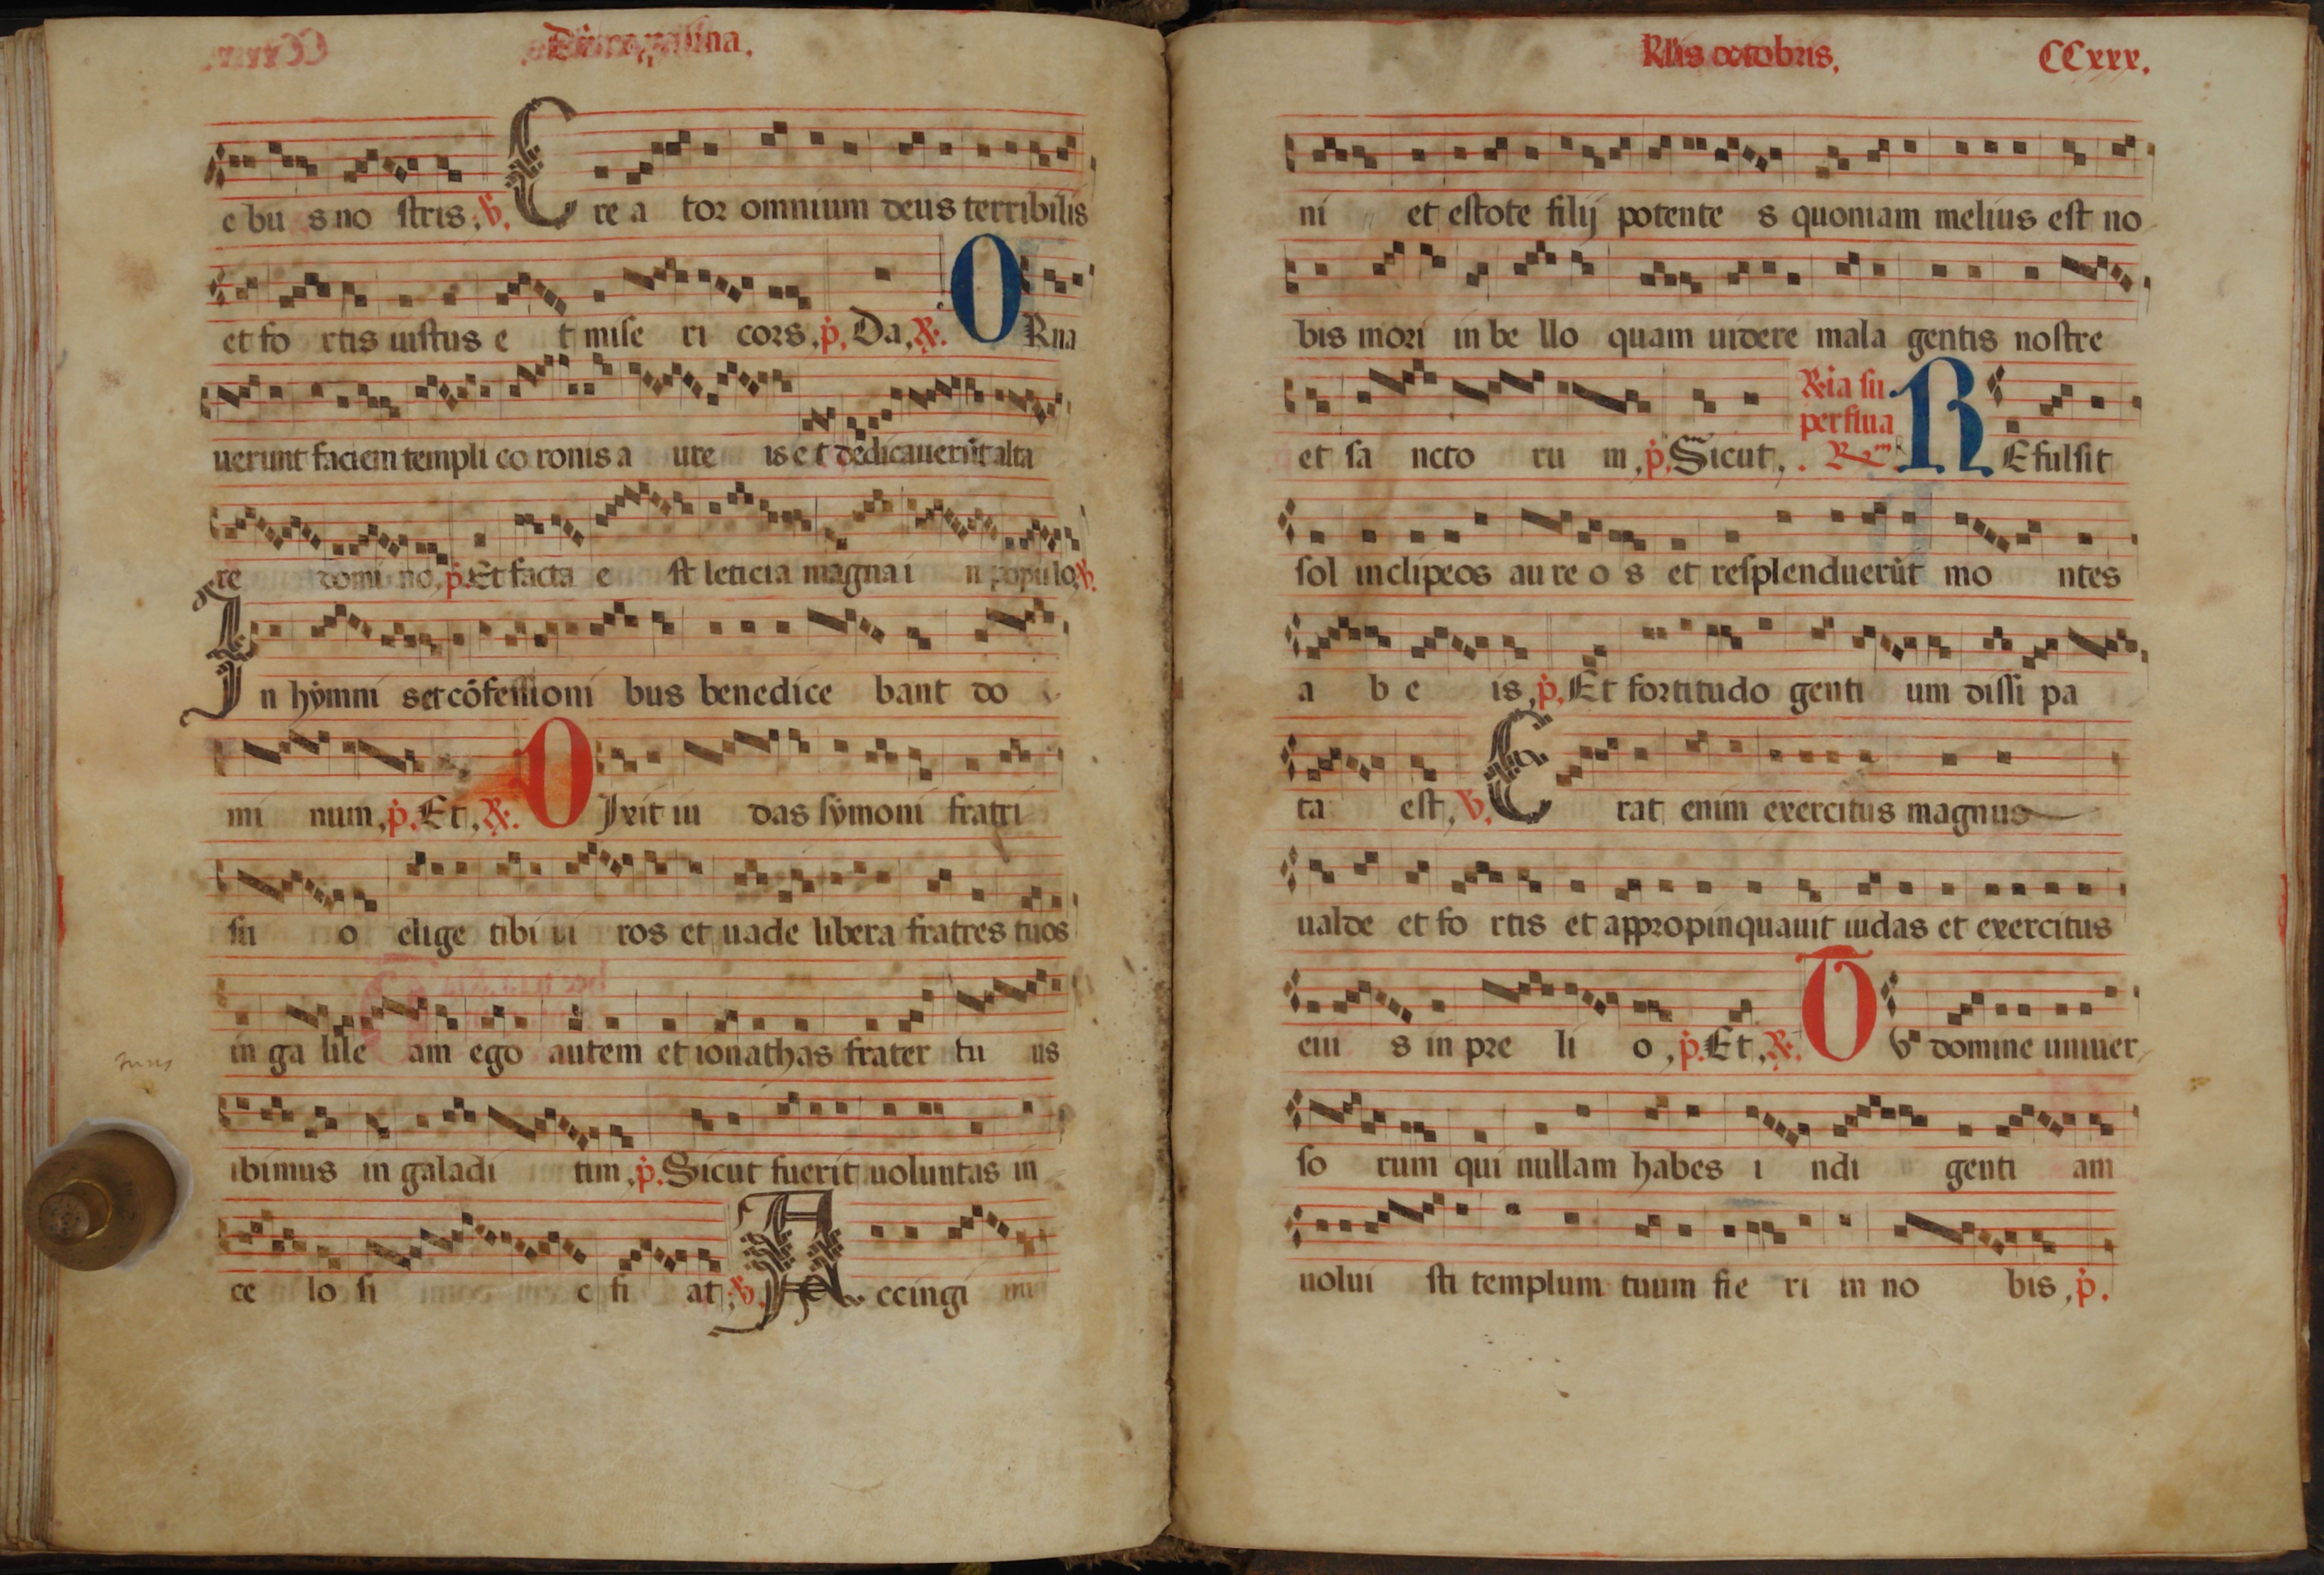 e bu s no stris, ℣. Cre a tor omnium deus terribilis
et fo rtis iustus e t mise ri cors, p̄. Da, ℟. ORna
uerunt faciem templi co ronis a ure is e t dedicauerūt alta
re domi no, p̄. Et facta e st leticia magna i n populo, ℣.
In hẏmni s et cōfessioni bus benedice bant do
mi num, p̄. Et, ℟. DIxit iu das sẏmoni fratri
su o elige tibi ui ros et uade libera fratres tuos
in ga lile am ego autem et ionathas frater tu us
ibimus in galadi tim, p̄. Sicut fuerit uoluntas in
ce lo si c fi at, ℣. Accingi mi
Klis octobris, CCxxx.
ni et estote filij potente s quoniam melius est no
bis mori in be llo quam uidere mala gentis nostre
et sa ncto ru m, p̄. Sicut, ℟ia su perflua REfulsit
sol in clipeos au re o s et resplenduerūt mo ntes
a b e is, p̄. Et fortitudo genti um dissi pa
ta est, ℣. Erat enim exercitus magnus
ualde et fo rtis et appropinquauit iudas et exercitus
eiu s in pre li o, p̄. Et, ℟. TV domine uniuer
so rum qui nullam habes i ndi genti am
uolui sti templum tuum fie ri in no bis, p̄.